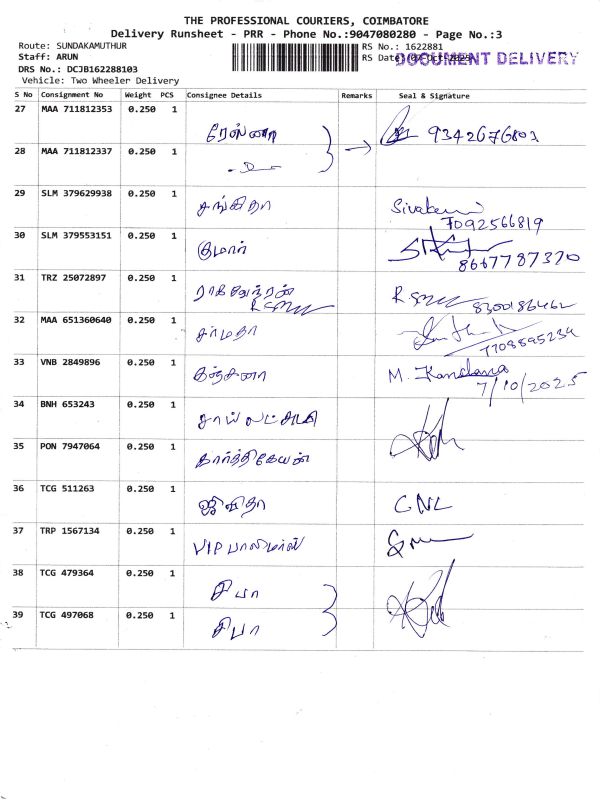 THE PROFESSIONAL COURIERS, COIMBATORE
Delivery Runsheet - PRR - Phone No.:9047080280 - Page No.:3
Route: SUNDAKAMUTHUR
RS No.: 1622881
Staff: ARUN
RS Date: 07 Oct 2025
DOCUMENT DELIVERY
DRS No.: DCJB162288103
Vehicle: Two Wheeler Delivery
S No Consignment No Weight PCS Consignee Details Remarks Seal & Signature
27 MAA 711812353 0.250 1 ரேஸ்னா 9342676801
28 MAA 711812337 0.250 1
29 SLM 379629938 0.250 1 சங்கிதா 7092566819
30 SLM 379553151 0.250 1 குமார் 8667787370
31 TRZ 25072897 0.250 1 8300186462
32 MAA 651360640 0.250 1 சர்மதா 7708895234
33 VNB 2849896 0.250 1 M. Kandana
7/10/2025
34 BNH 653243 0.250 1 சாய் லட்சுமி
35 PON 7947064 0.250 1 கார்த்திகேயன்
36 TCG 511263 0.250 1 ஜிவிதா CNL
37 TRP 1567134 0.250 1 VIP பாலிமர்ஸ்
38 TCG 479364 0.250 1 சிபா
39 TCG 497068 0.250 1 சிபா